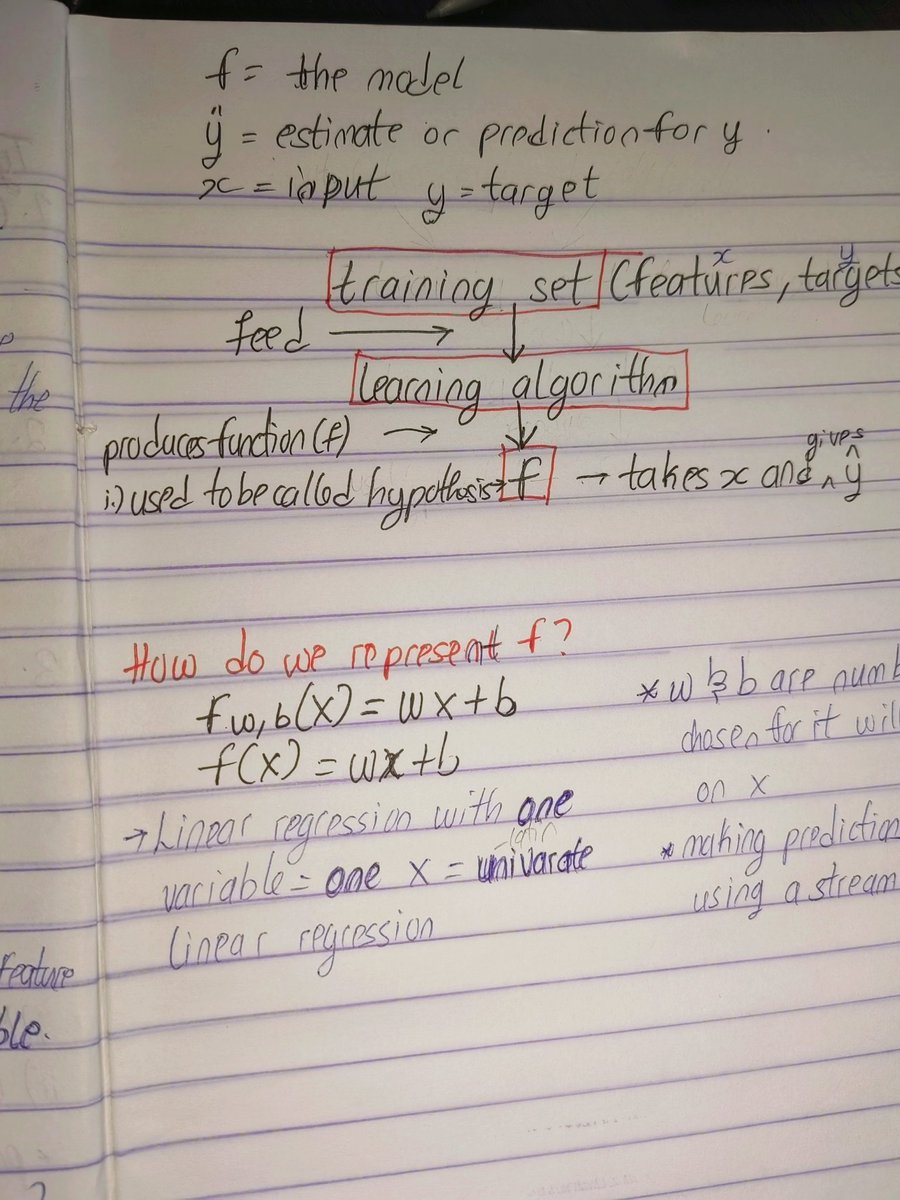 f = the model
ÿ = estimate or prediction for y.
x = input y = target
training set (features, targets
x y
feed →
learning algorithm
produces function (f) →
i.) used to be called hypothesis → f → takes x and ^ ŷ
gives
How do we represent f?
fw,b(x) = wx+b
f(x) = wx+b
→ Linear regression with one
variable = one x = univarate
latin
linear regression
* w & b are numb
chosen for it will
on x
* making prediction
using a stream
the
feature
ble.